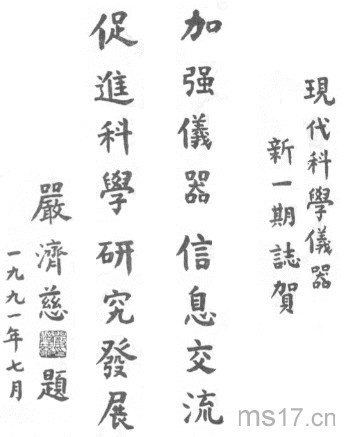 現代科學儀器
新一期誌賀
加强儀器信息交流
促進科學研究發展
嚴濟慈題
一九九一年七月
ms17.cn